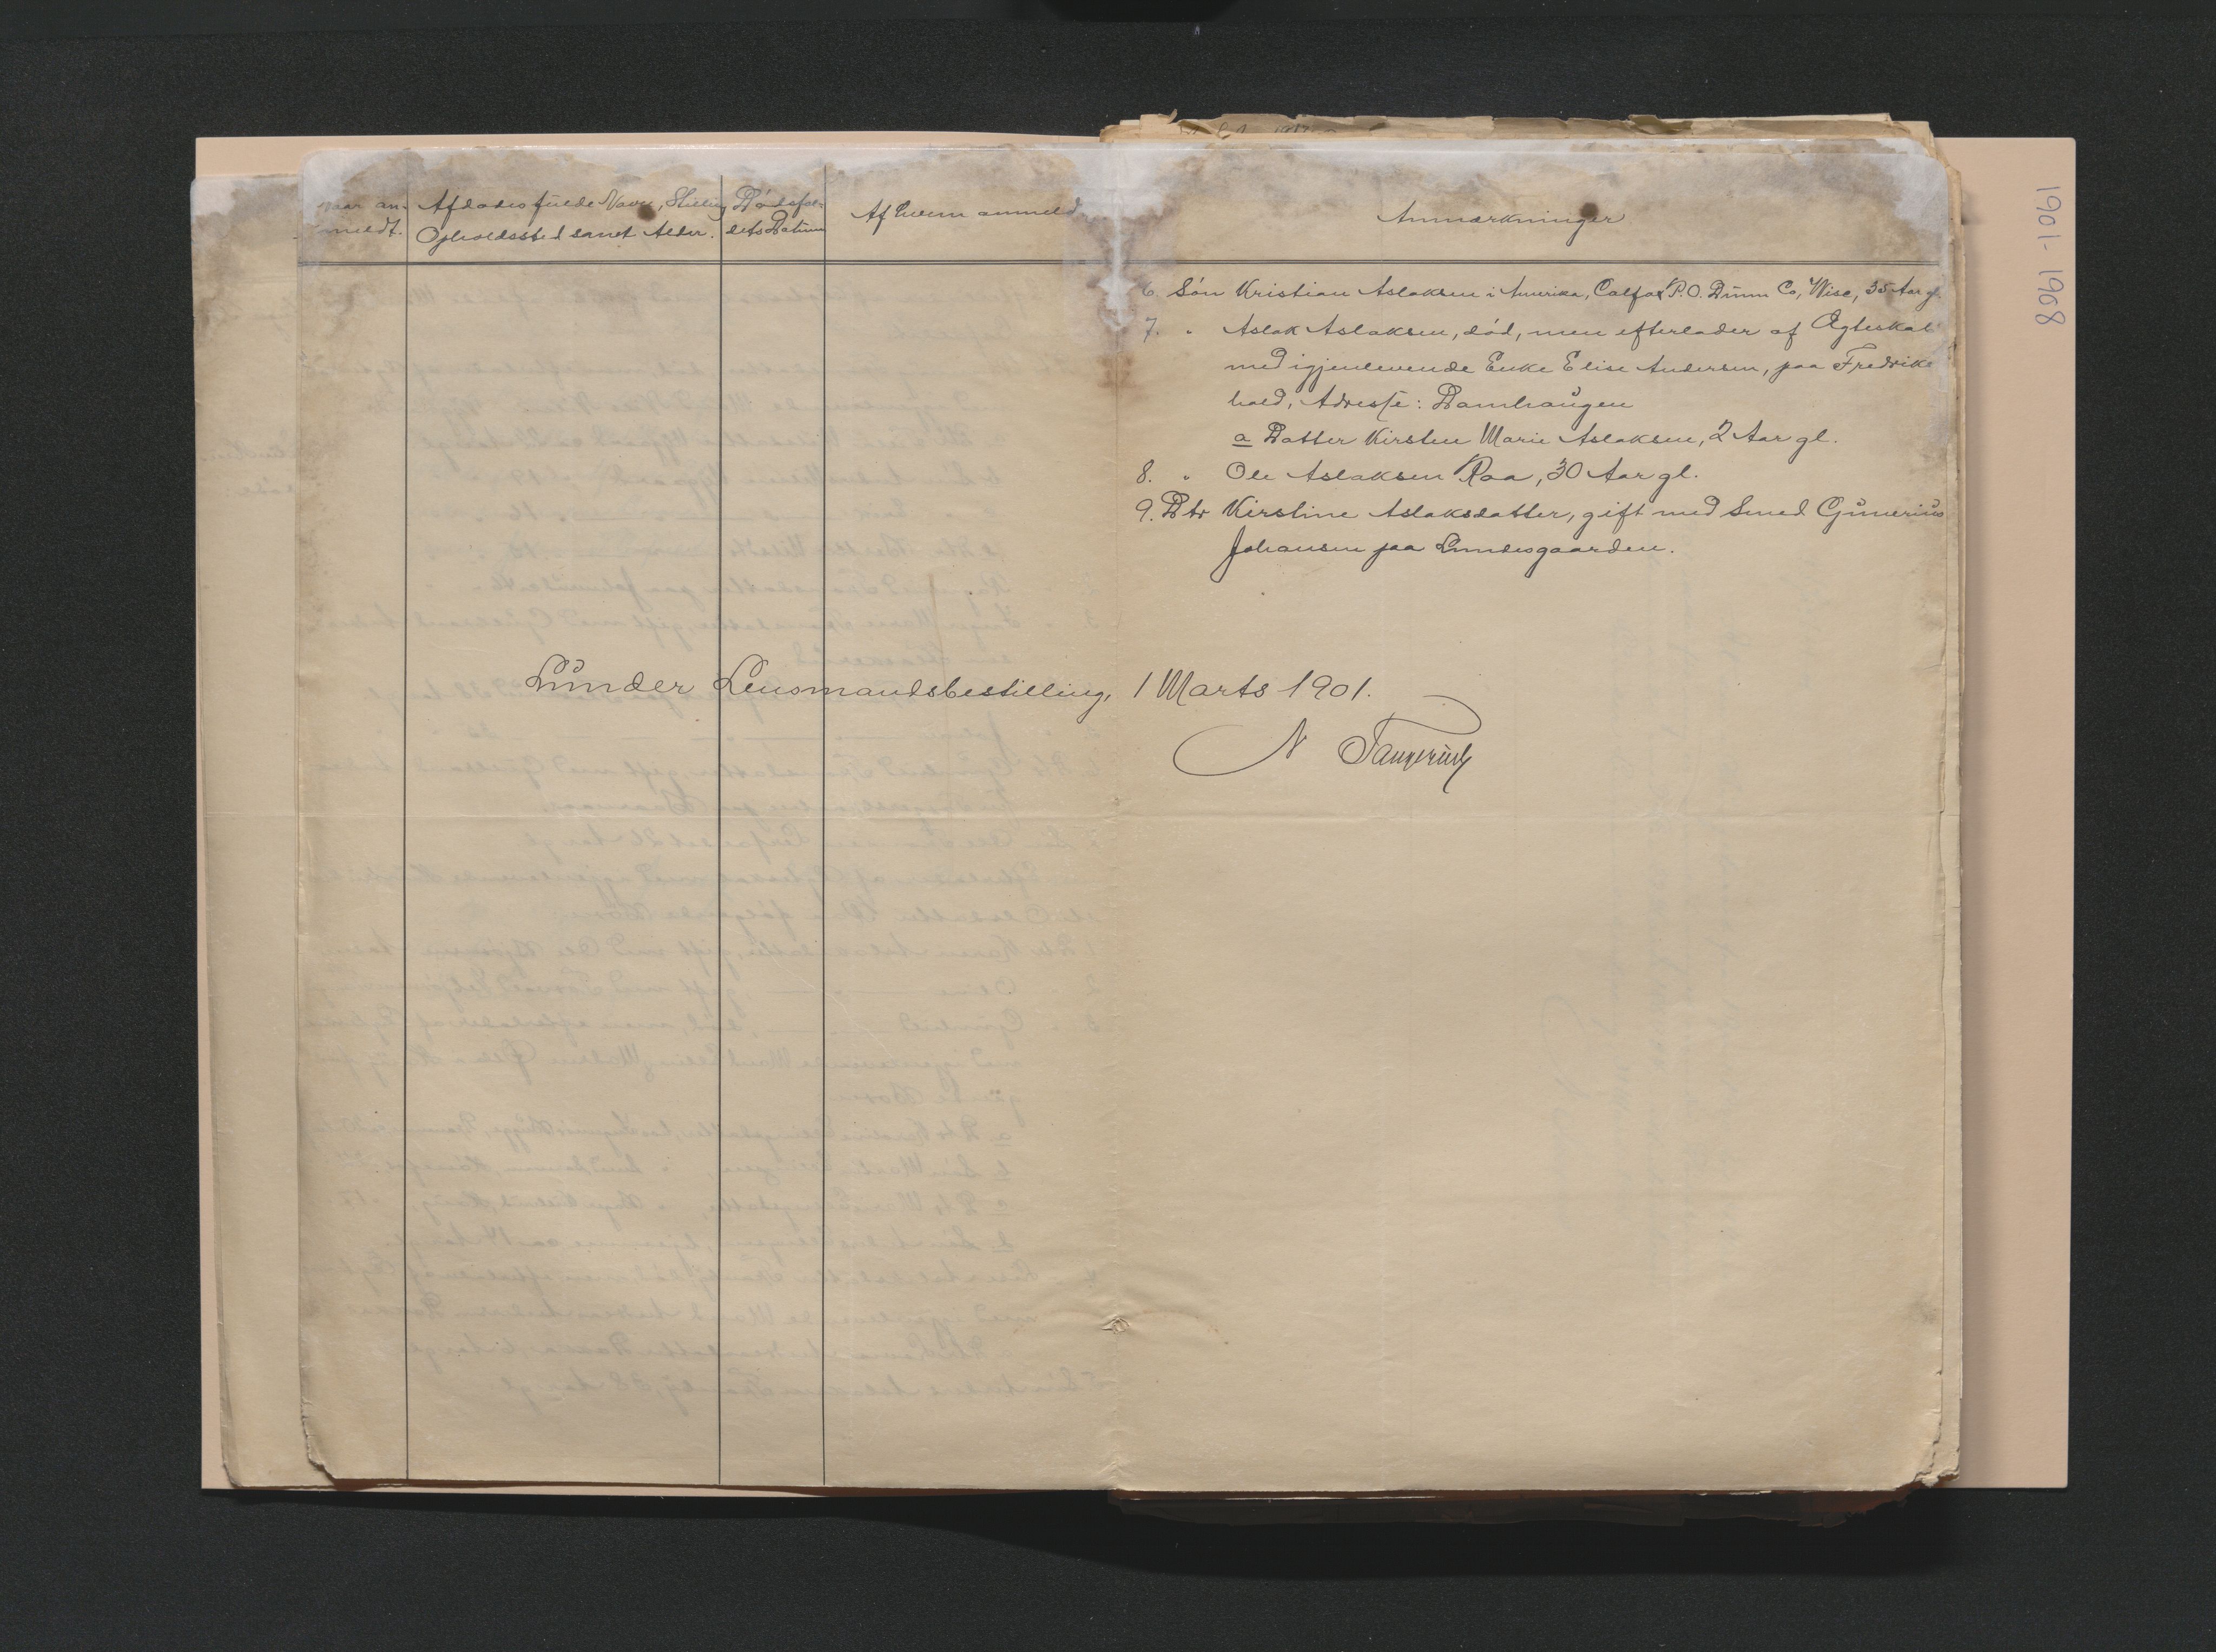 naar an-
meldt.
Afdødes fulde Navn, Stilling
Opholdssted samt Alder.
Dødsfal-
dets Datum
Af hvem anmeldt
Anmærkninger
6 Søn Kristian Aslaksen i Amerika, Calfax P.O. Dunn Co, Wisc, 35 Aar gl.
7. " Aslak Aslaksen, død, men efterlader af Ægteskab
med igjenlevende Enke Elise Andersen, paa Fredriks
hald, Adresse: Damhaugen
a Datter Kirsten Marie Aslaksen, 2 Aar gl.
8. " Ole Aslaksen Raa, 30 Aar gl.
9. Dtr Kirstine Aslaksdatter, gift med Smed Gunerius
Johansen paa Lundesgaarden.
Lunder Lensmandsbestilling, 1 Marts 1901.
N
1901-1908